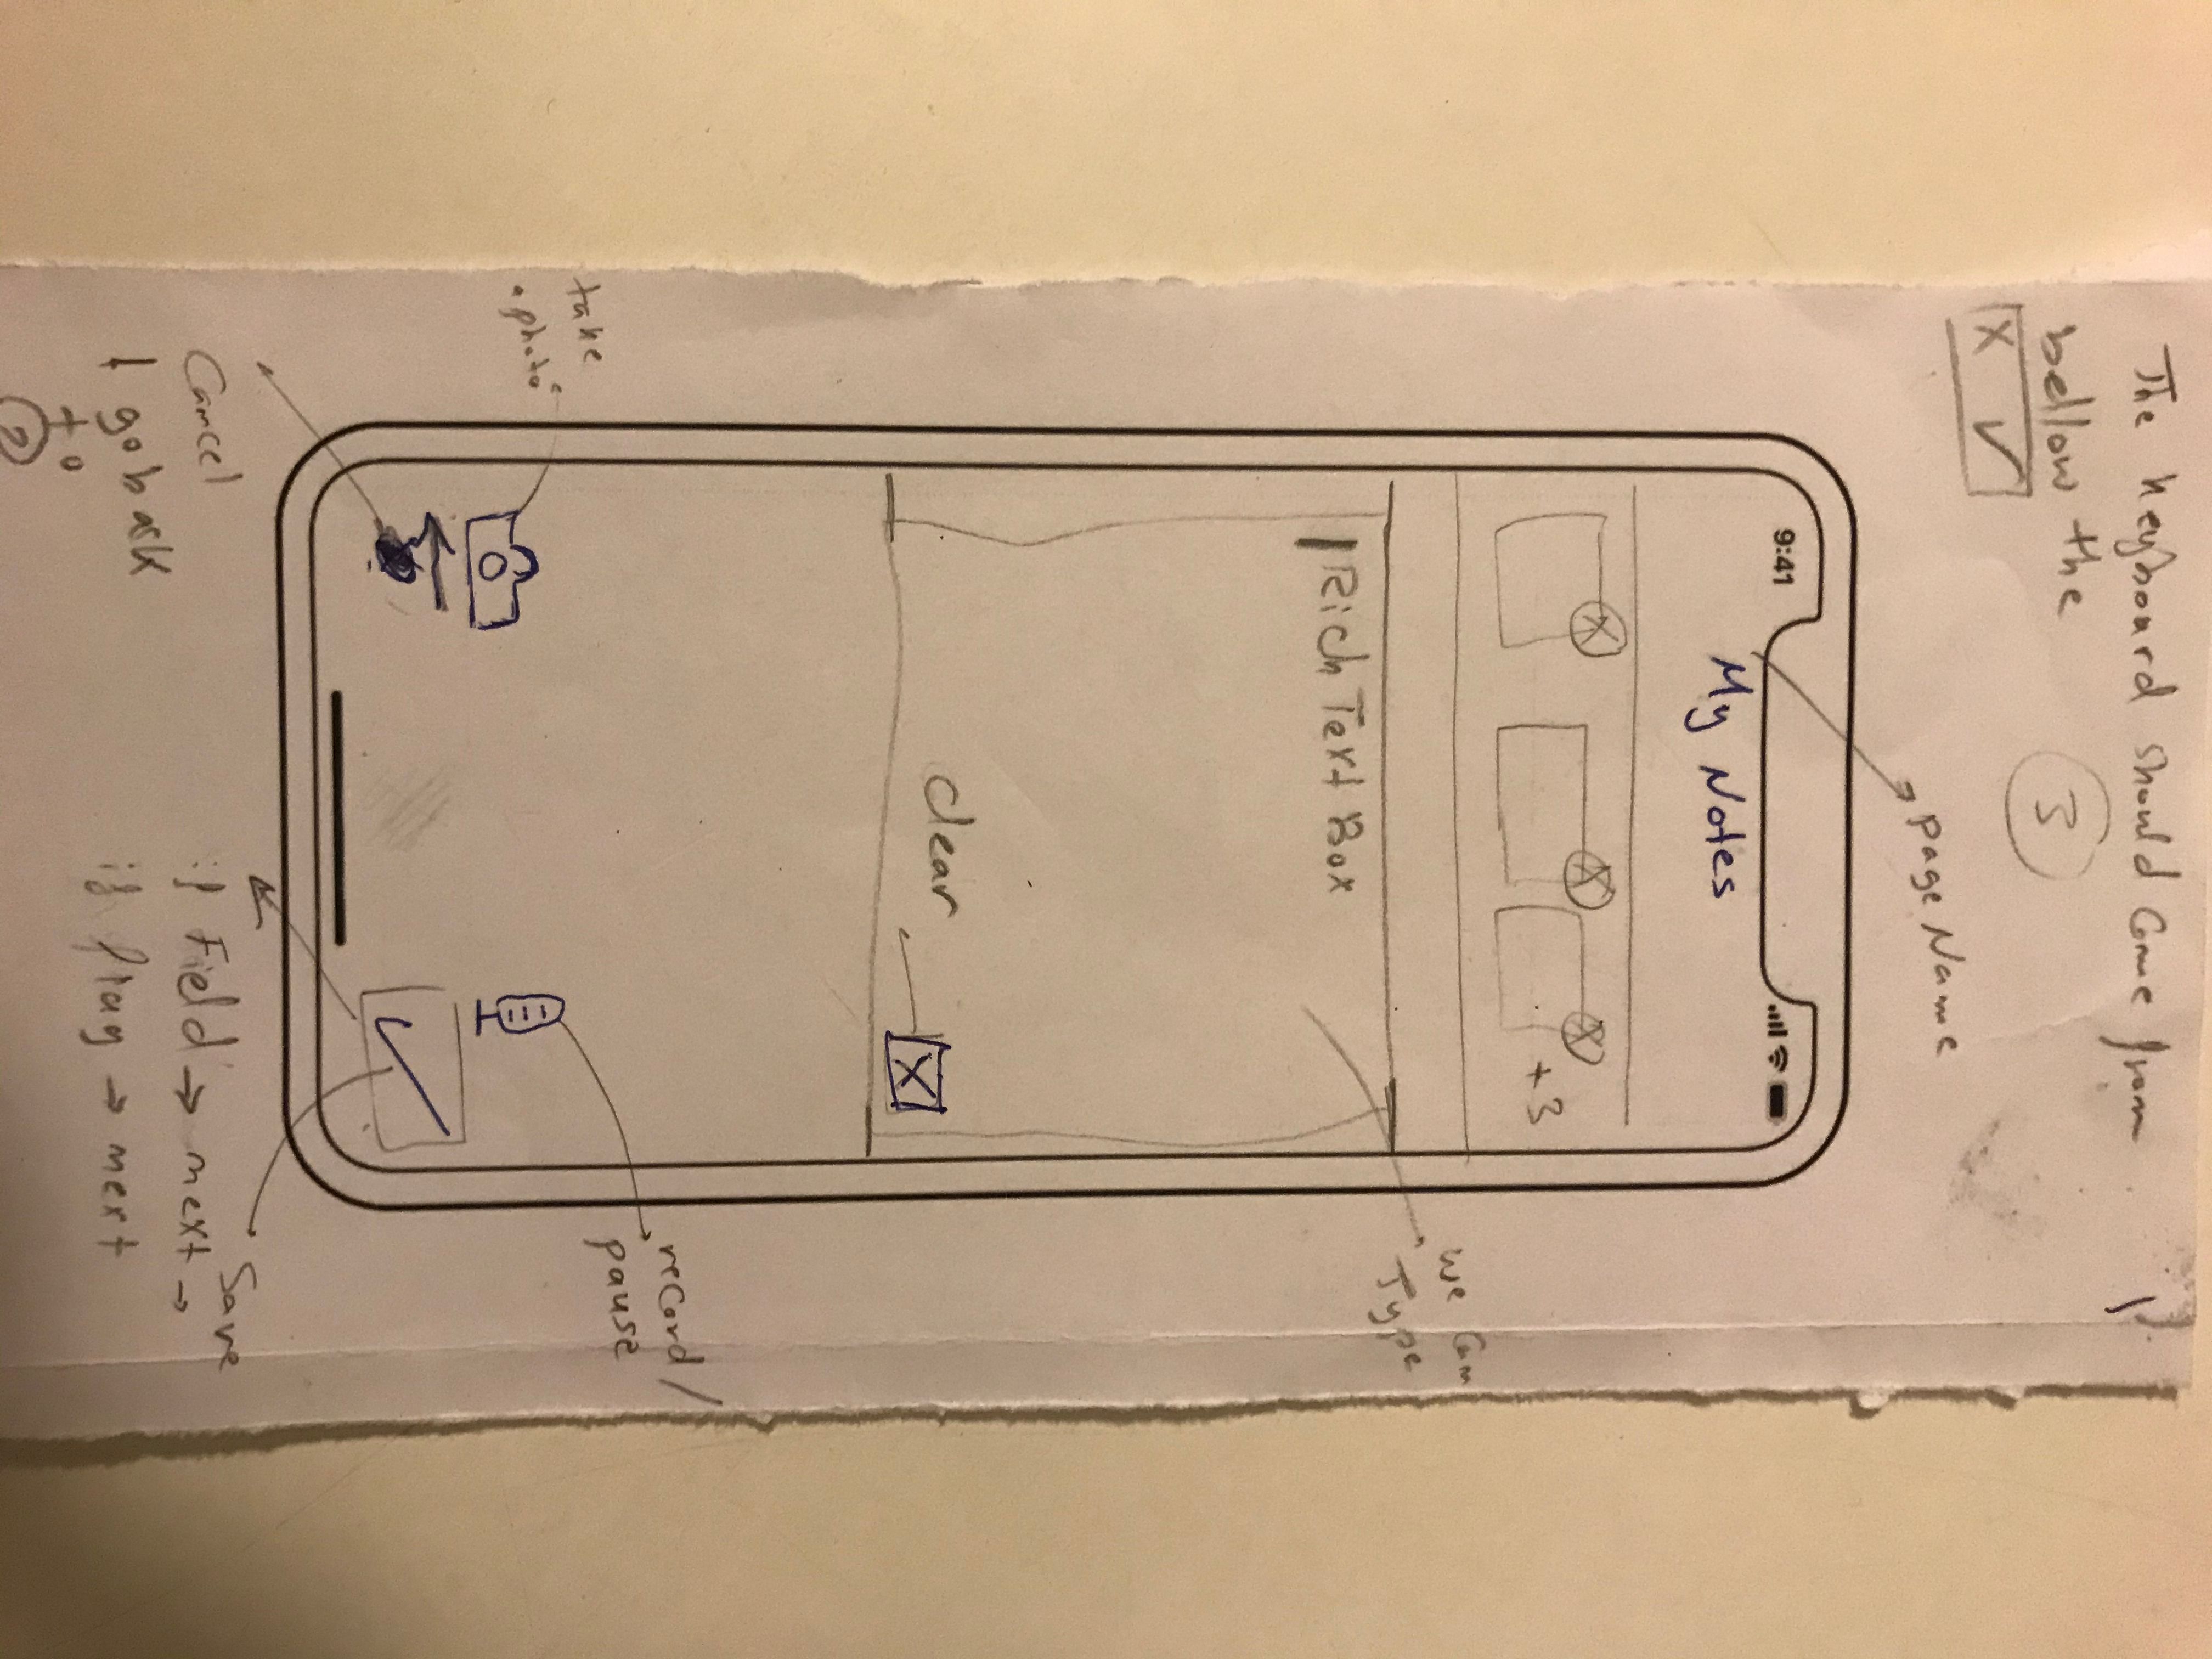 The Keyboard should come from
bellow the
3
X ✓
page Name
9:41
My Notes
X X X
+3
we can
Type
Rich Text Box
clear
X
record /
pause
take
a photo
Cancel
go bask
to
2
Save
if Field → next →
if flag → next